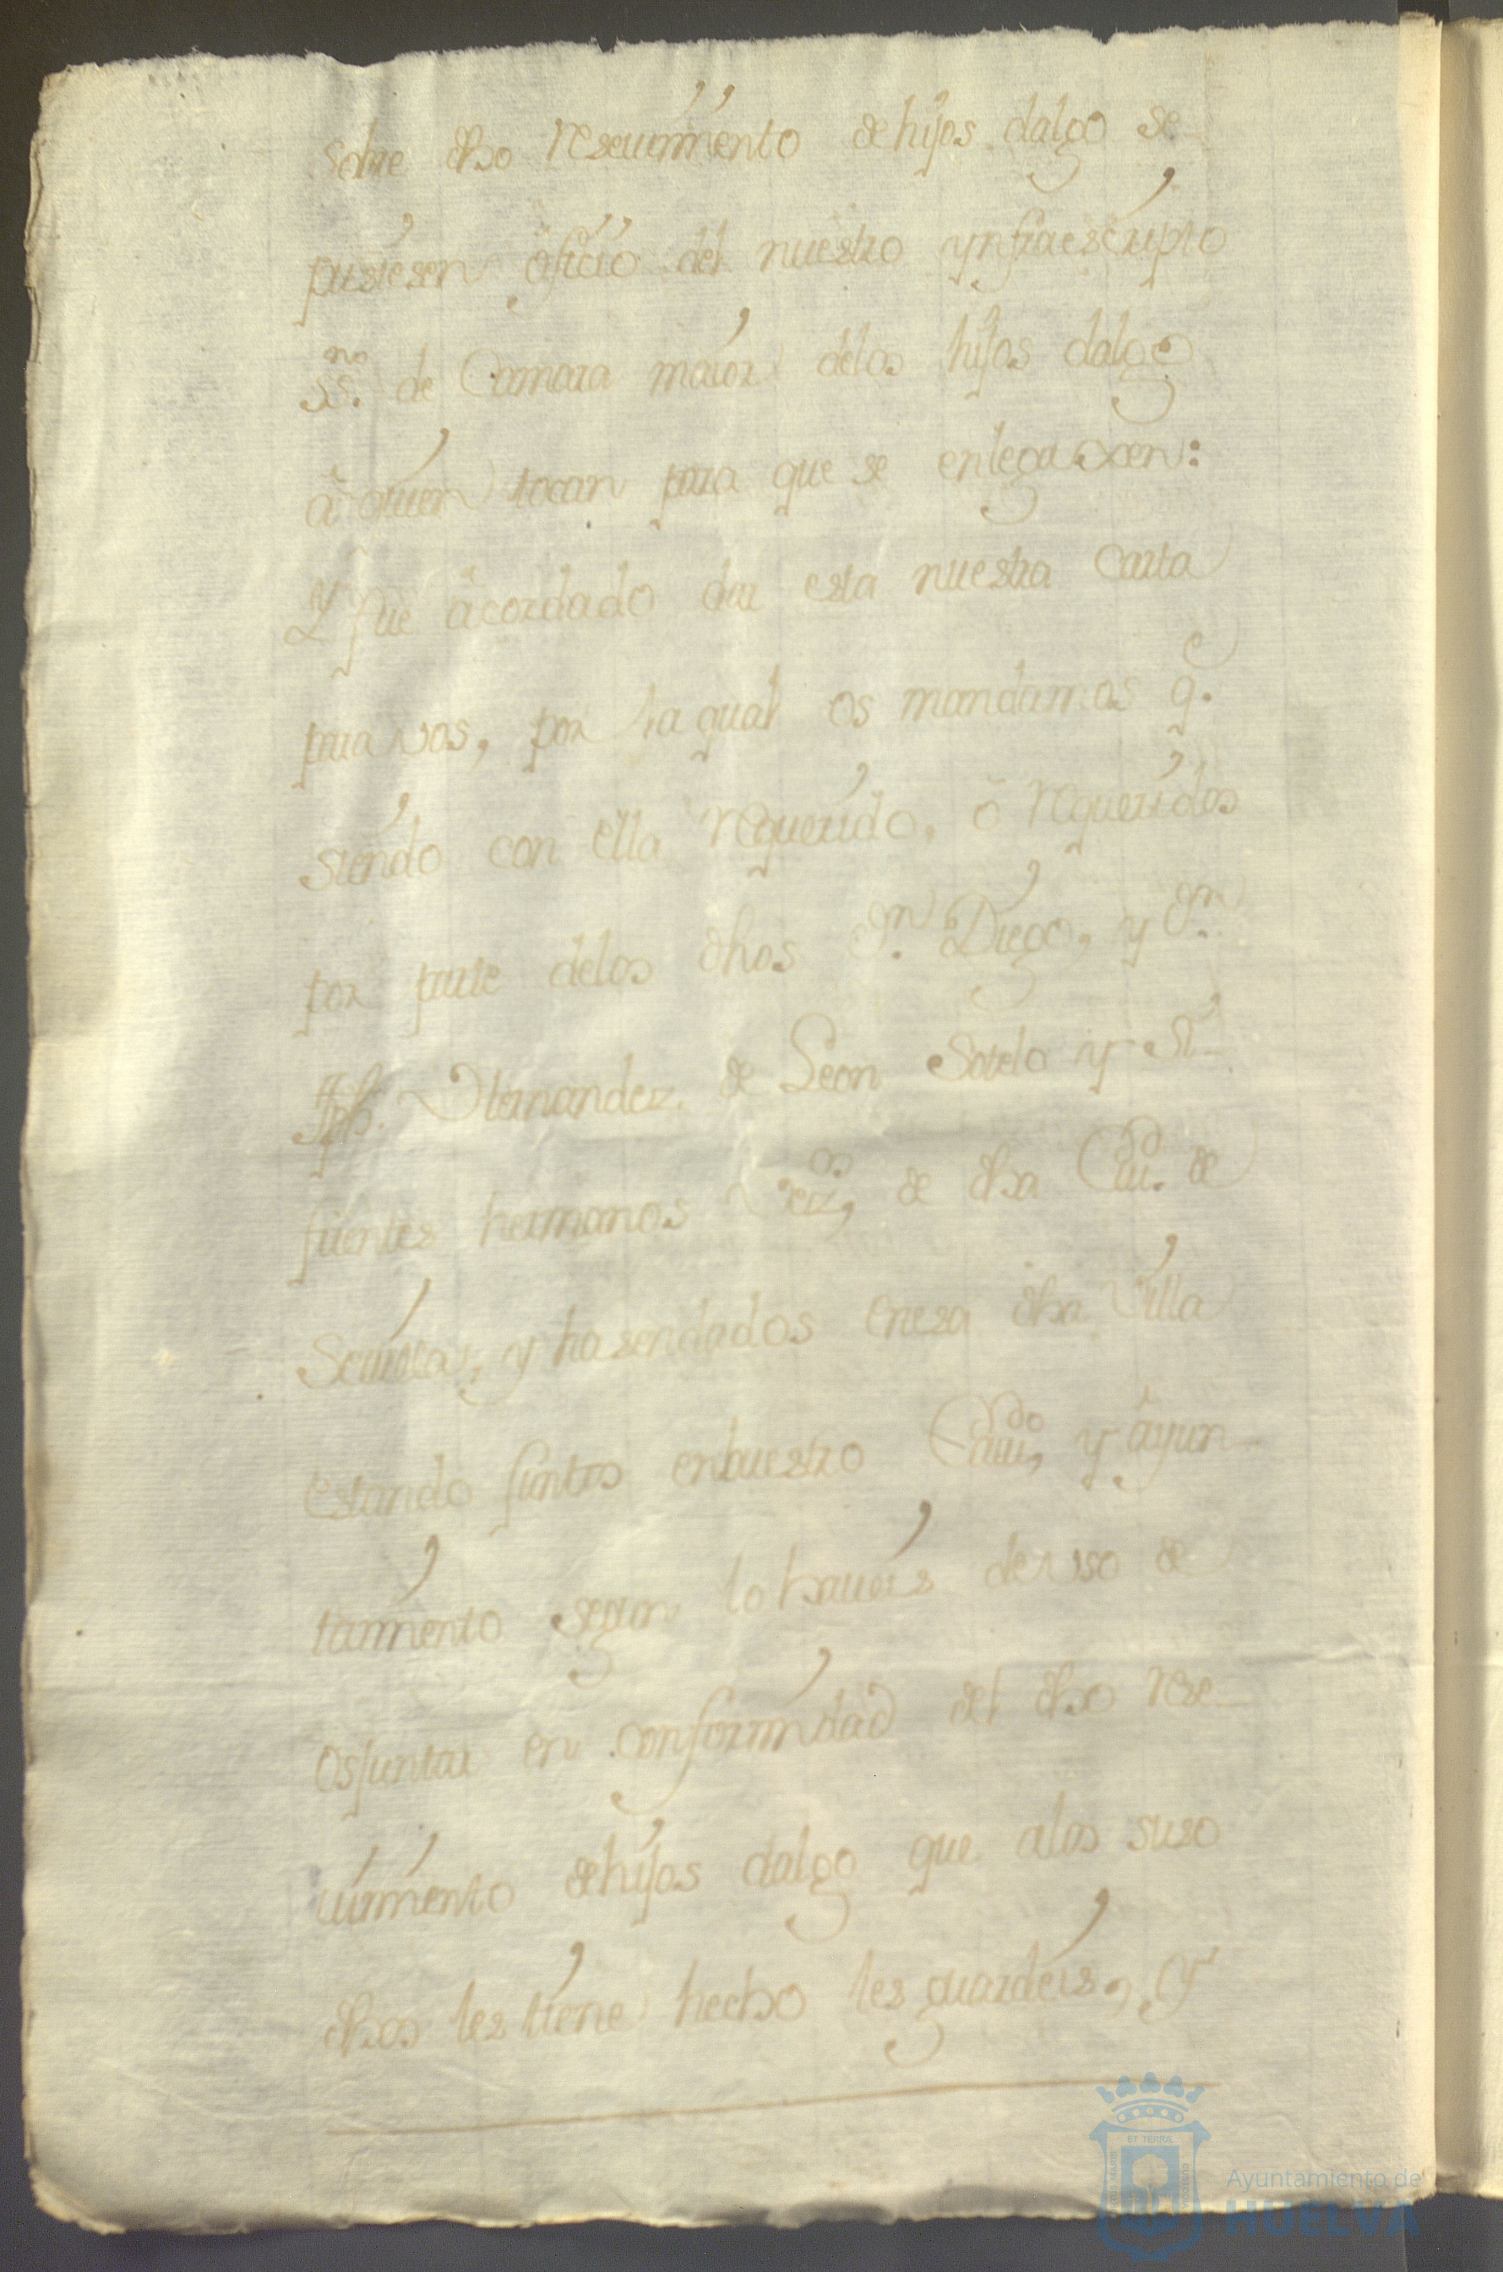 sobre dho reseuimiento de hijos dalgo se
pusiesen ofiçio del nuestro ynfraescripto
ss.no de Camara maior delos hijos dalgo
â quien tocan para que se enlegaxen:
Y fue âcordado dar esta nuestra Carta
para vos, por la qual os mandamos q.e
siendo con ella requerido, ô requeridos
por parte delos dhos D.n Diego, y D.n
Jph. Hernandez de Leon Sotelo y Si-
fuentes hermanos Vez.os, de dha Ciu.d de
Seuilla, y hasendados enesa dha Villa
estando juntos enbuestro Cauil.do, y âyun-
tamiento segun lo haueis de vso de
os juntar en conformidad del dho rese-
uimiento de hijos dalgo que alos suso
dhos les tiene hecho les guardeis, y
Ayuntamiento de
HUELVA